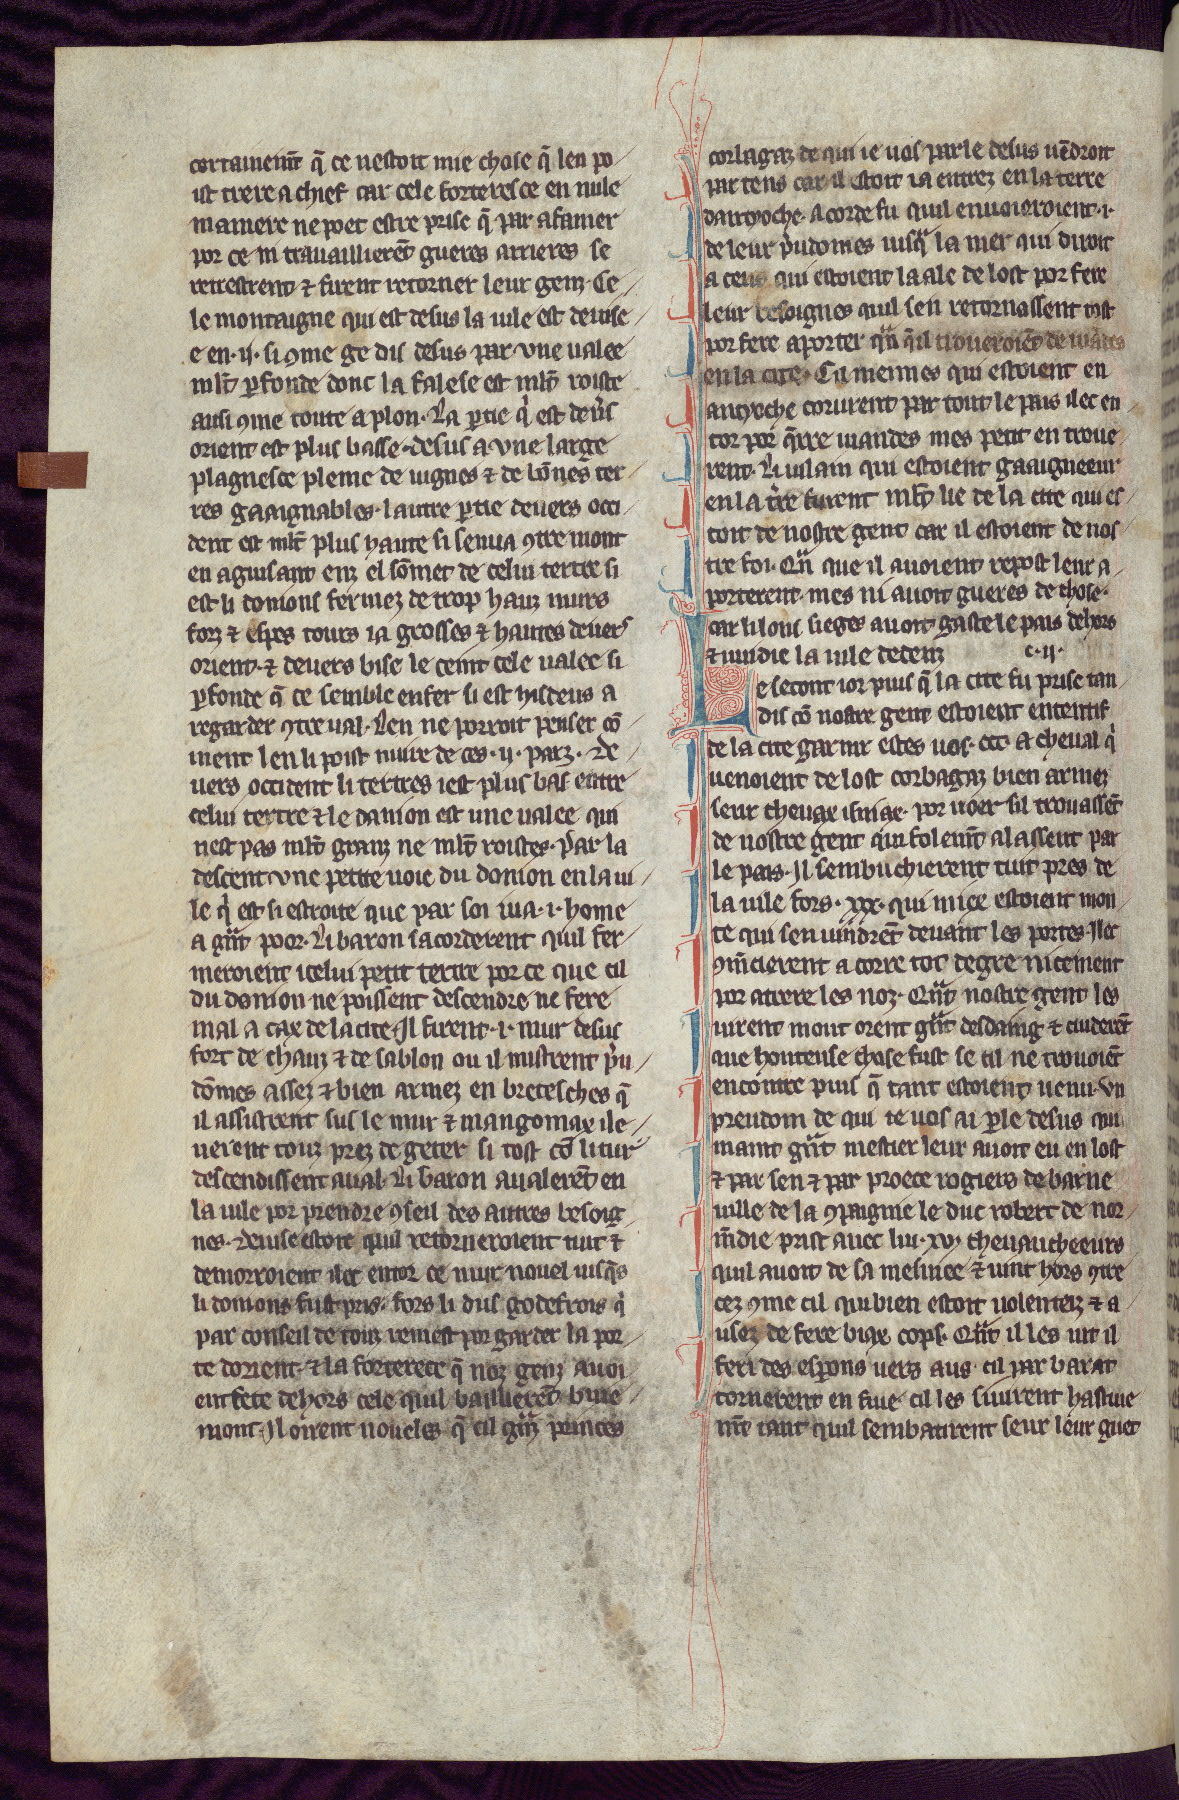 certainemt̄ q̄ ce nestoit mie chose q̄ len po
ist trere a chief car cele forteresce en nule
maniere ne poet estre prise q̄ par afamer
por ce ni travaillierēt gueres arrieres se
retrestrent ⁊ firent retorner leur genz. Ce
le montaigne qui est desus la uile est deuise
e en .ij. si ꝯme ge dis desus par vne ualee
ml̄t ꝑfonde donc la falese est ml̄t roiste
ausi ꝯme toute a plon. La ꝑtie qͥ est deu̓s
orient est plus basse. desus a vne large
plagnesce pleine de uignes ⁊ de bōnes ter
res gaaignables. lautre ꝑtie deuers occi
dent est ml̄t plus haute si senua ꝯtre mont
en aguisant enz el sōmet de celui tertre si
est li donions fermez de trop hauz murs
forz ⁊ espes tours ia grosses ⁊ hautes deuers
orient. ⁊ deuers bise le ceint cele ualee si
ꝑfonde q̄ ce semble enfer si est hisdeus a
regarder ꝯtre ual. Len ne porroit penser cō
ment len li poist nuire de ces .ij. parz. De
uers occident li tertres iest plus bas entre
celui tertre ⁊ le donion est une ualee qui
nest pas ml̄t granz ne ml̄t roistes. Par la
descent vne petite uoie du donion en la ui
le qͥ est si estroite que par soi iua .i. home
a gͣnt poor. Li baron sacorderent quil fer
meroient icelui petit tertre por ce que cil
du donion ne poissent descendre ne fere
mal a cax de la cite. Il firent .i. mur desus
fort de chauz ⁊ de sablon ou il mistrent pͥu
dōmes assez ⁊ bien armez en bretesches q̄
il assistrent sus le mur ⁊ mangoniax ile
uerent touz prez de geter si tost cō li tur
descendissent aual. Li baron aualerēt en
la uile por prendre ꝯseil des autres besoig
nes. deuise estoit quil retorneroient tuit ⁊
demorroient ilec entor ce mur nouel iusq̄s
li donions fust pris. fors li dus godefrois qͥ
par conseil de touz remest por garder la por
te dorient. ⁊ la forterece q̄ noz genz auoi
ent fete dehors cele quil baillierēt buie
mont. Il oirent noueles q̄ cil gͣnz princes
corbagaz de qui ie uos parle desus uēdroit
par tens car il estoit ia entrez en la terre
dantyoche. Acorde fu quil enuoieroient .i.
de leur pͥudomes iusqͣ la mer qui diroit
a ceus qui estoient la ale de lost por fere
leur besoignes quil sen retornassent tost
por fere aporter qͣn q̄il troueroiēt de uiandes
en la cite. Cil meimes qui estoient en
antyoche corurent par tout le pais ilec en
tor por q̄rre uiandes mes petit en troue
rent. Li uilain qui estoient gaaigneeur
en la tͤre furent ml̄t lie de la cite qui es
toit de nostre gent car il estoient de nos
tre foi. Qͣn que il auoient repost leur a
porterent. mes ni auoit gueres de chose.
car li lons sieges auoit gaste le pais dehors
⁊ uuidie la uile dedenz c. ij.
Le secont ior puis q̄ la cite fu prise tan
dis cō nostre gent estoient ententif
de la cite garnir estes uos .ccc. a cheual qͥ
uenoient de lost corbagaz bien armez
seur cheuax isniax. por uoer sil trouassēt
de nostre gent qui folemt̄ alassent par
le pais. Il sembuchierent tuit pres de
la uile fors .xxx. qui mieȝ estoient mon
te qui sen uindrēt deuant les portes. Ilec
ꝯmēcierent a corre tot degre nicement
por atrere les noz. Qͣnt nostre gent les
uirent mout orent gͣnt desdaing ⁊ cuiderēt
que honteuse chose fust se cil ne trouoiēt
encontre puis q̄ tant estoient uenu. Vn
preudom de qui ie uos ai ꝑle desus qui
maint gͣnt mestier leur auoit eu en lost
⁊ par sen ⁊ par proece rogiers de barne
uille de la ꝯpaignie le duc robert de nor
m̄die prist auec lui .xv. cheuaucheeurs
quil auoit de sa mesniee ⁊ uint hors ꝯtre
cez ꝯme cil qui bien estoit uolenteiz ⁊ a
usez de fere biax cops. Qͣnt il les uit il
feri des esperons uers aus. cil par barat
tornerent en fuie cil les siuirent hastiue
mt̄ tant quil sembatirent seur leur guet